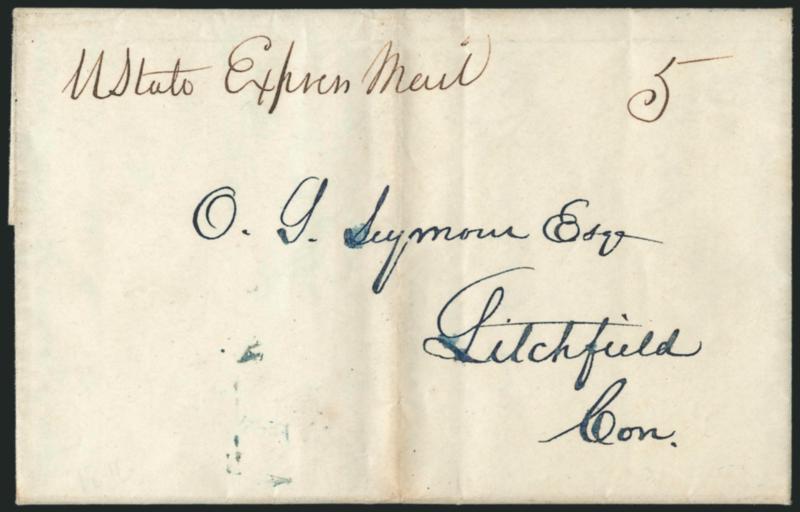 U State Express Mail 5
O. S. Seymour Esq
Litchfield
Con.